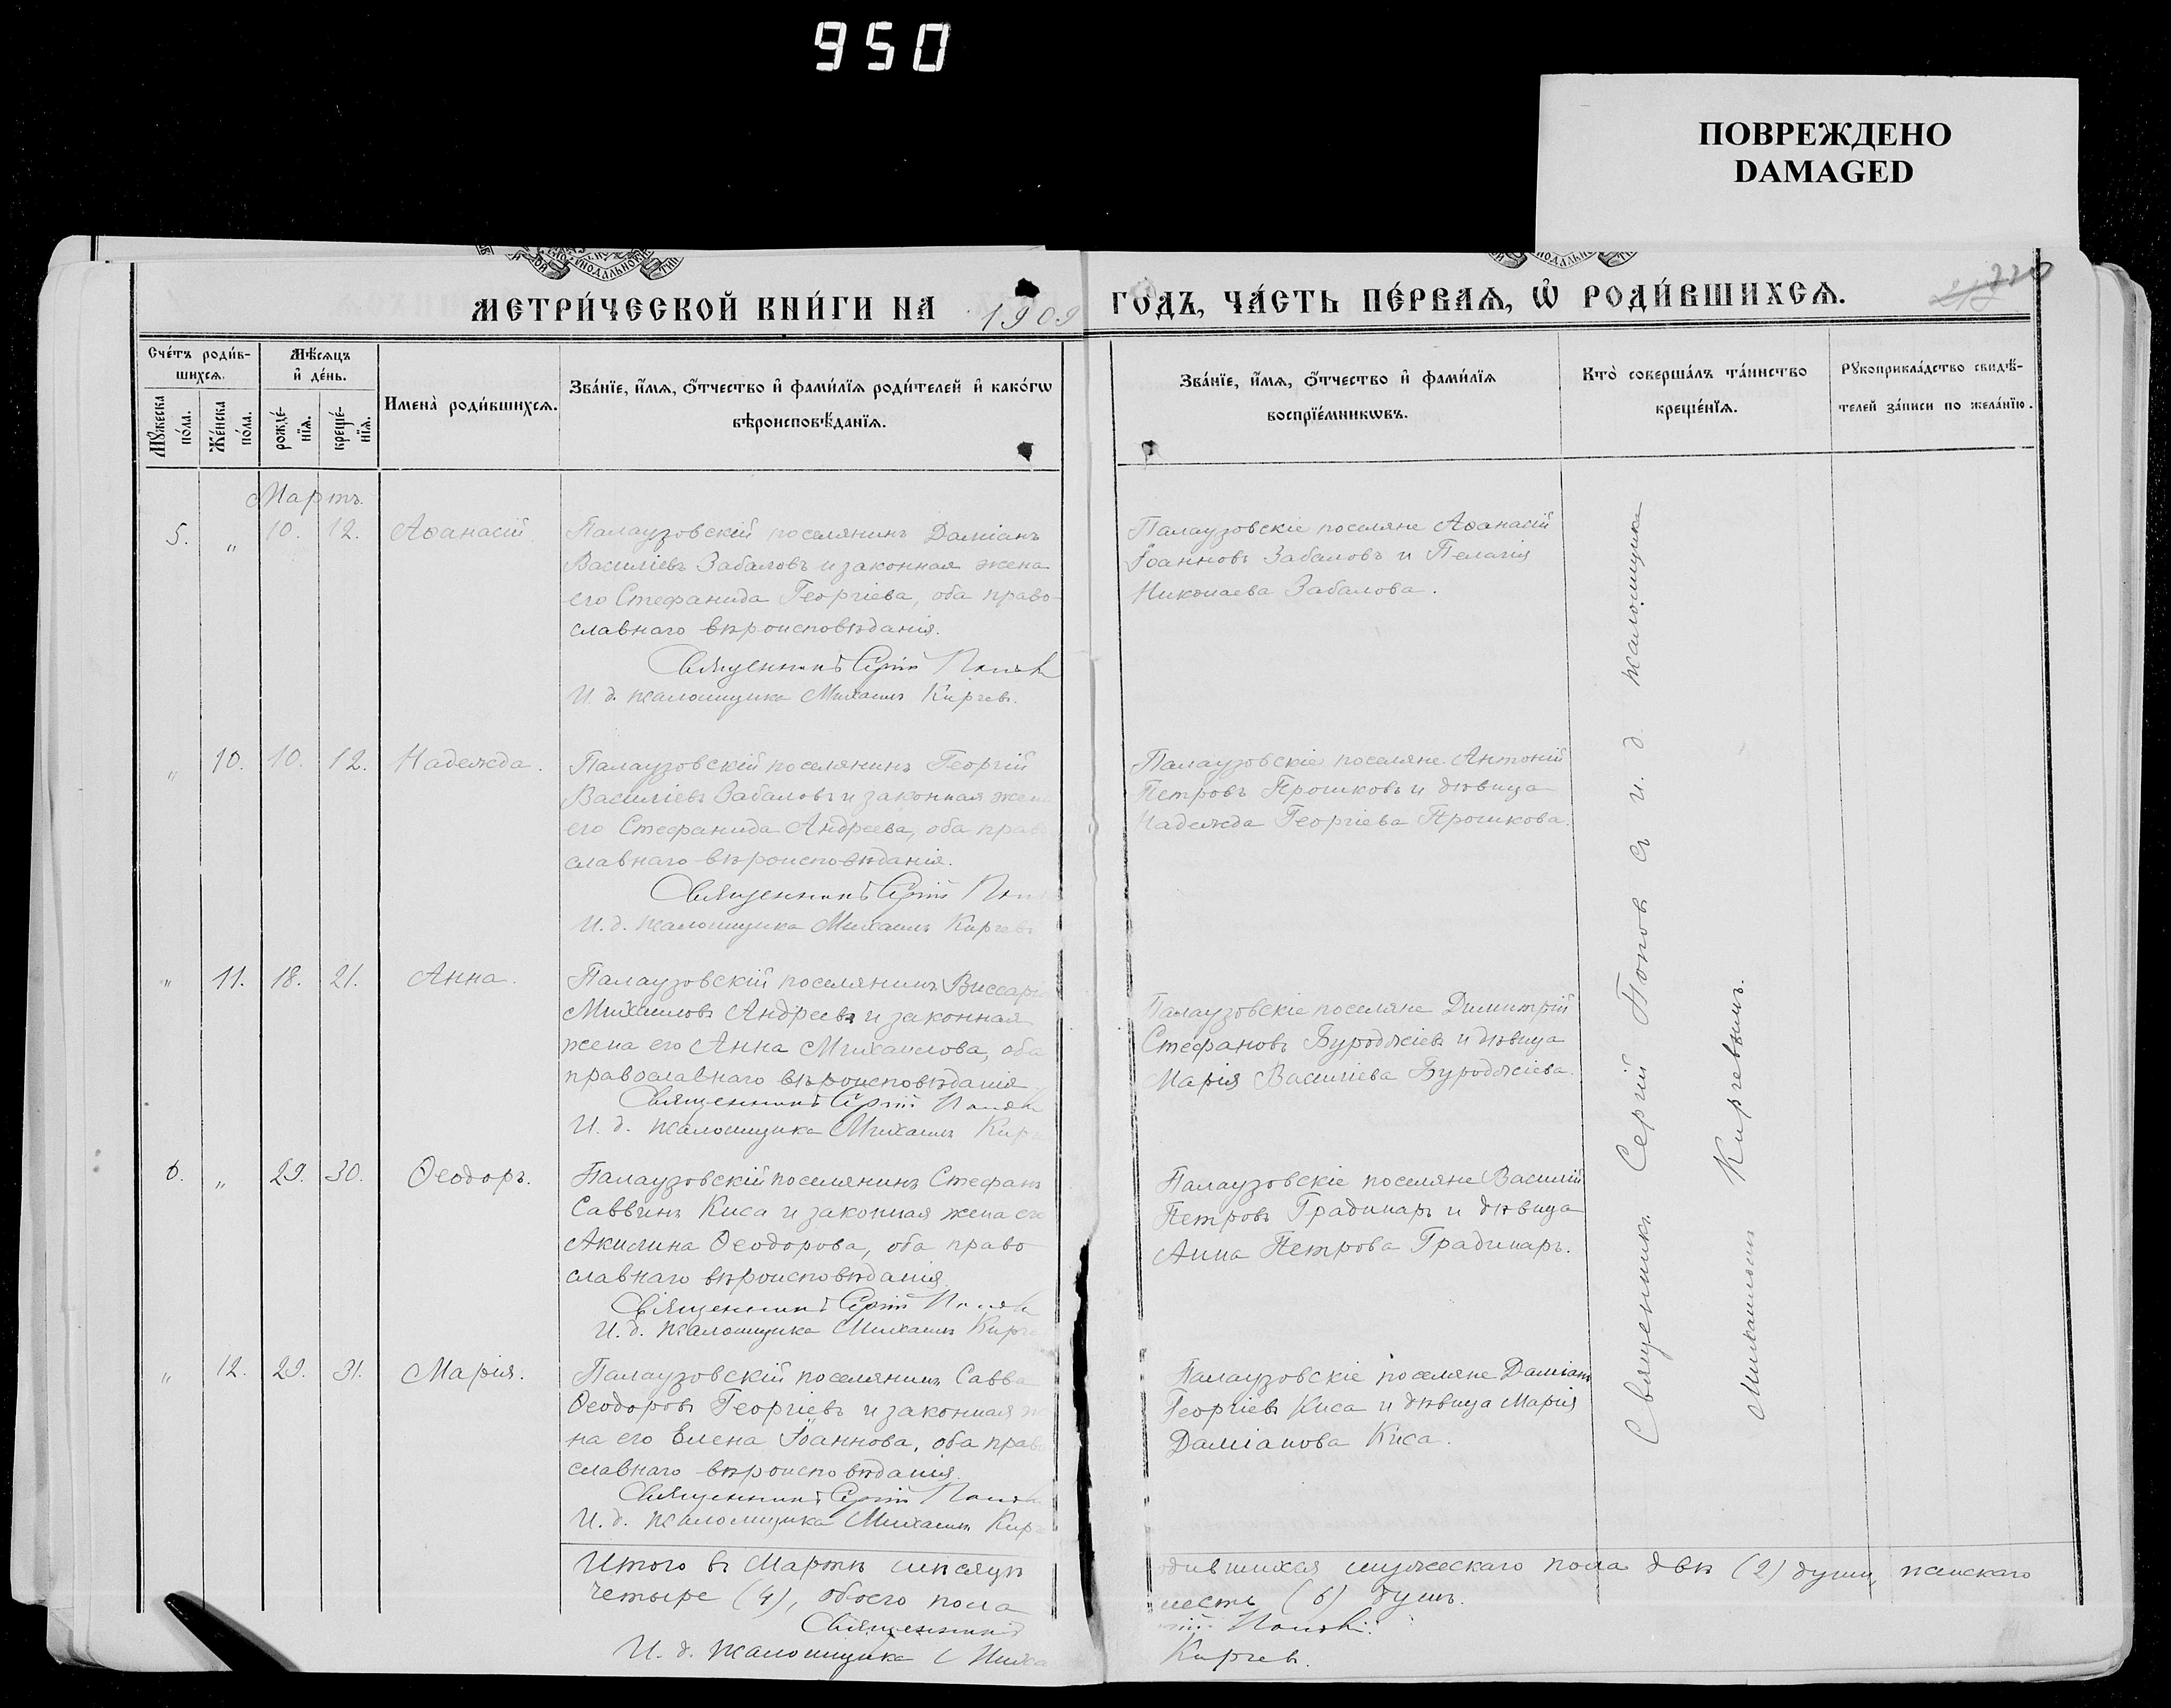 950
ПОВРЕЖДЕНО
DAMAGED
МЕТРИ́ЧЕСКОЙ КНИ́ГИ НА 1909 ГОДЪ, ЧА́СТЬ ПЕ́РВАѦ, Ѽ РОДИ́ВШИХСѦ.
220
Сче́тъ роди́в-
шихсѧ.
Мѣ́сѧцъ
и҆ де́нь.
Мꙋ́жеска
по́ла.
Же́нска
по́ла.
рожде́-
нїѧ.
креще́-
нїѧ.
Имена̀ роди́вшихсѧ.
Зва́нїе, и҆́мѧ, ѻ҆́тчество и҆ фами́лїѧ роди́телей и҆ како́гѡ
вѣроисповѣ́данїѧ.
Зва́нїе, и҆́мѧ, ѻ҆́тчество и҆ фами́лїѧ
воспрїе́мникѡвъ.
Кто̀ соверша́лъ та́инство
креще́нїѧ.
Рꙋкоприкла́дство свидѣ́-
телей за́писи по жела́нїю.
Мартъ.
5. „ 10. 12. Аѳанасій
Палаузовскій поселянинъ Даміанъ
Василіевъ Забаловъ и законная жена
его Стефанида Георгіева, оба право-
славнаго вѣроисповѣданія.
Священникъ Сергій
И. д. псаломщика Михаилъ Киргевъ.
Палаузовскіе поселяне Аѳанасій
Іоанновъ Забаловъ и Пелагія
Николаева Забалова.
„ 10. 10. 12. Надежда.
Палаузовскій поселянинъ Георгій
Василіевъ Забаловъ и законная жена
его Стефанида Андреева, оба право
славнаго вѣроисповѣданія.
Священникъ Сергій
И. д. псаломщика Михаилъ Киргевъ
Палаузовскіе поселяне Антоній
Петровъ Прошковъ и дѣвица
Надежда Георгіева Прошкова.
„ 11. 18. 21. Анна.
Палаузовскій поселянинъ Виссарі
Михаиловъ Андреевъ и законная
жена его Анна Михаилова, оба
православнаго вѣроисповѣданія.
Священникъ Сергій
И. д. псаломщика Михаилъ Кирг
Палаузовскіе поселяне Димитрій
Стефановъ Буроджіевъ и дѣвица
Марія Василіева Буроджіева.
6. „ 29. 30. Ѳеодоръ.
Палаузовскій поселянинъ Стефанъ
Саввинъ Киса и законная жена его
Акилина Ѳеодорова, оба право
славнаго вѣроисповѣданія
Священникъ Сергій
И. д. псаломщика Михаилъ Кирге
Палаузовскіе поселяне Василій
Петровъ Градинаръ и дѣвица
Анна Петрова Градинаръ.
„ 12. 29. 31. Марія.
Палаузовскій поселянинъ Савва
Ѳеодоровъ Георгіевъ и законная
на его Елена Іоаннова, оба право
славнаго вѣроисповѣданія.
Священникъ Сергій
И. д. псаломщика Михаилъ Кирг
Палаузовскіе поселяне Даміанъ
Георгіевъ Киса и дѣвица Марія
Даміанова Киса.
Священникъ Сергій Поповъ съ и. д. псаломщика
Михаиломъ Киргевымъ.
Итого въ Мартѣ мѣсяцѣ одившихся мужескаго пола двѣ (2) души, женскаго
четыре (4), обоего пола шесть (6) душъ.
Священникъ
И. д. псаломщика Миха Киргевъ.